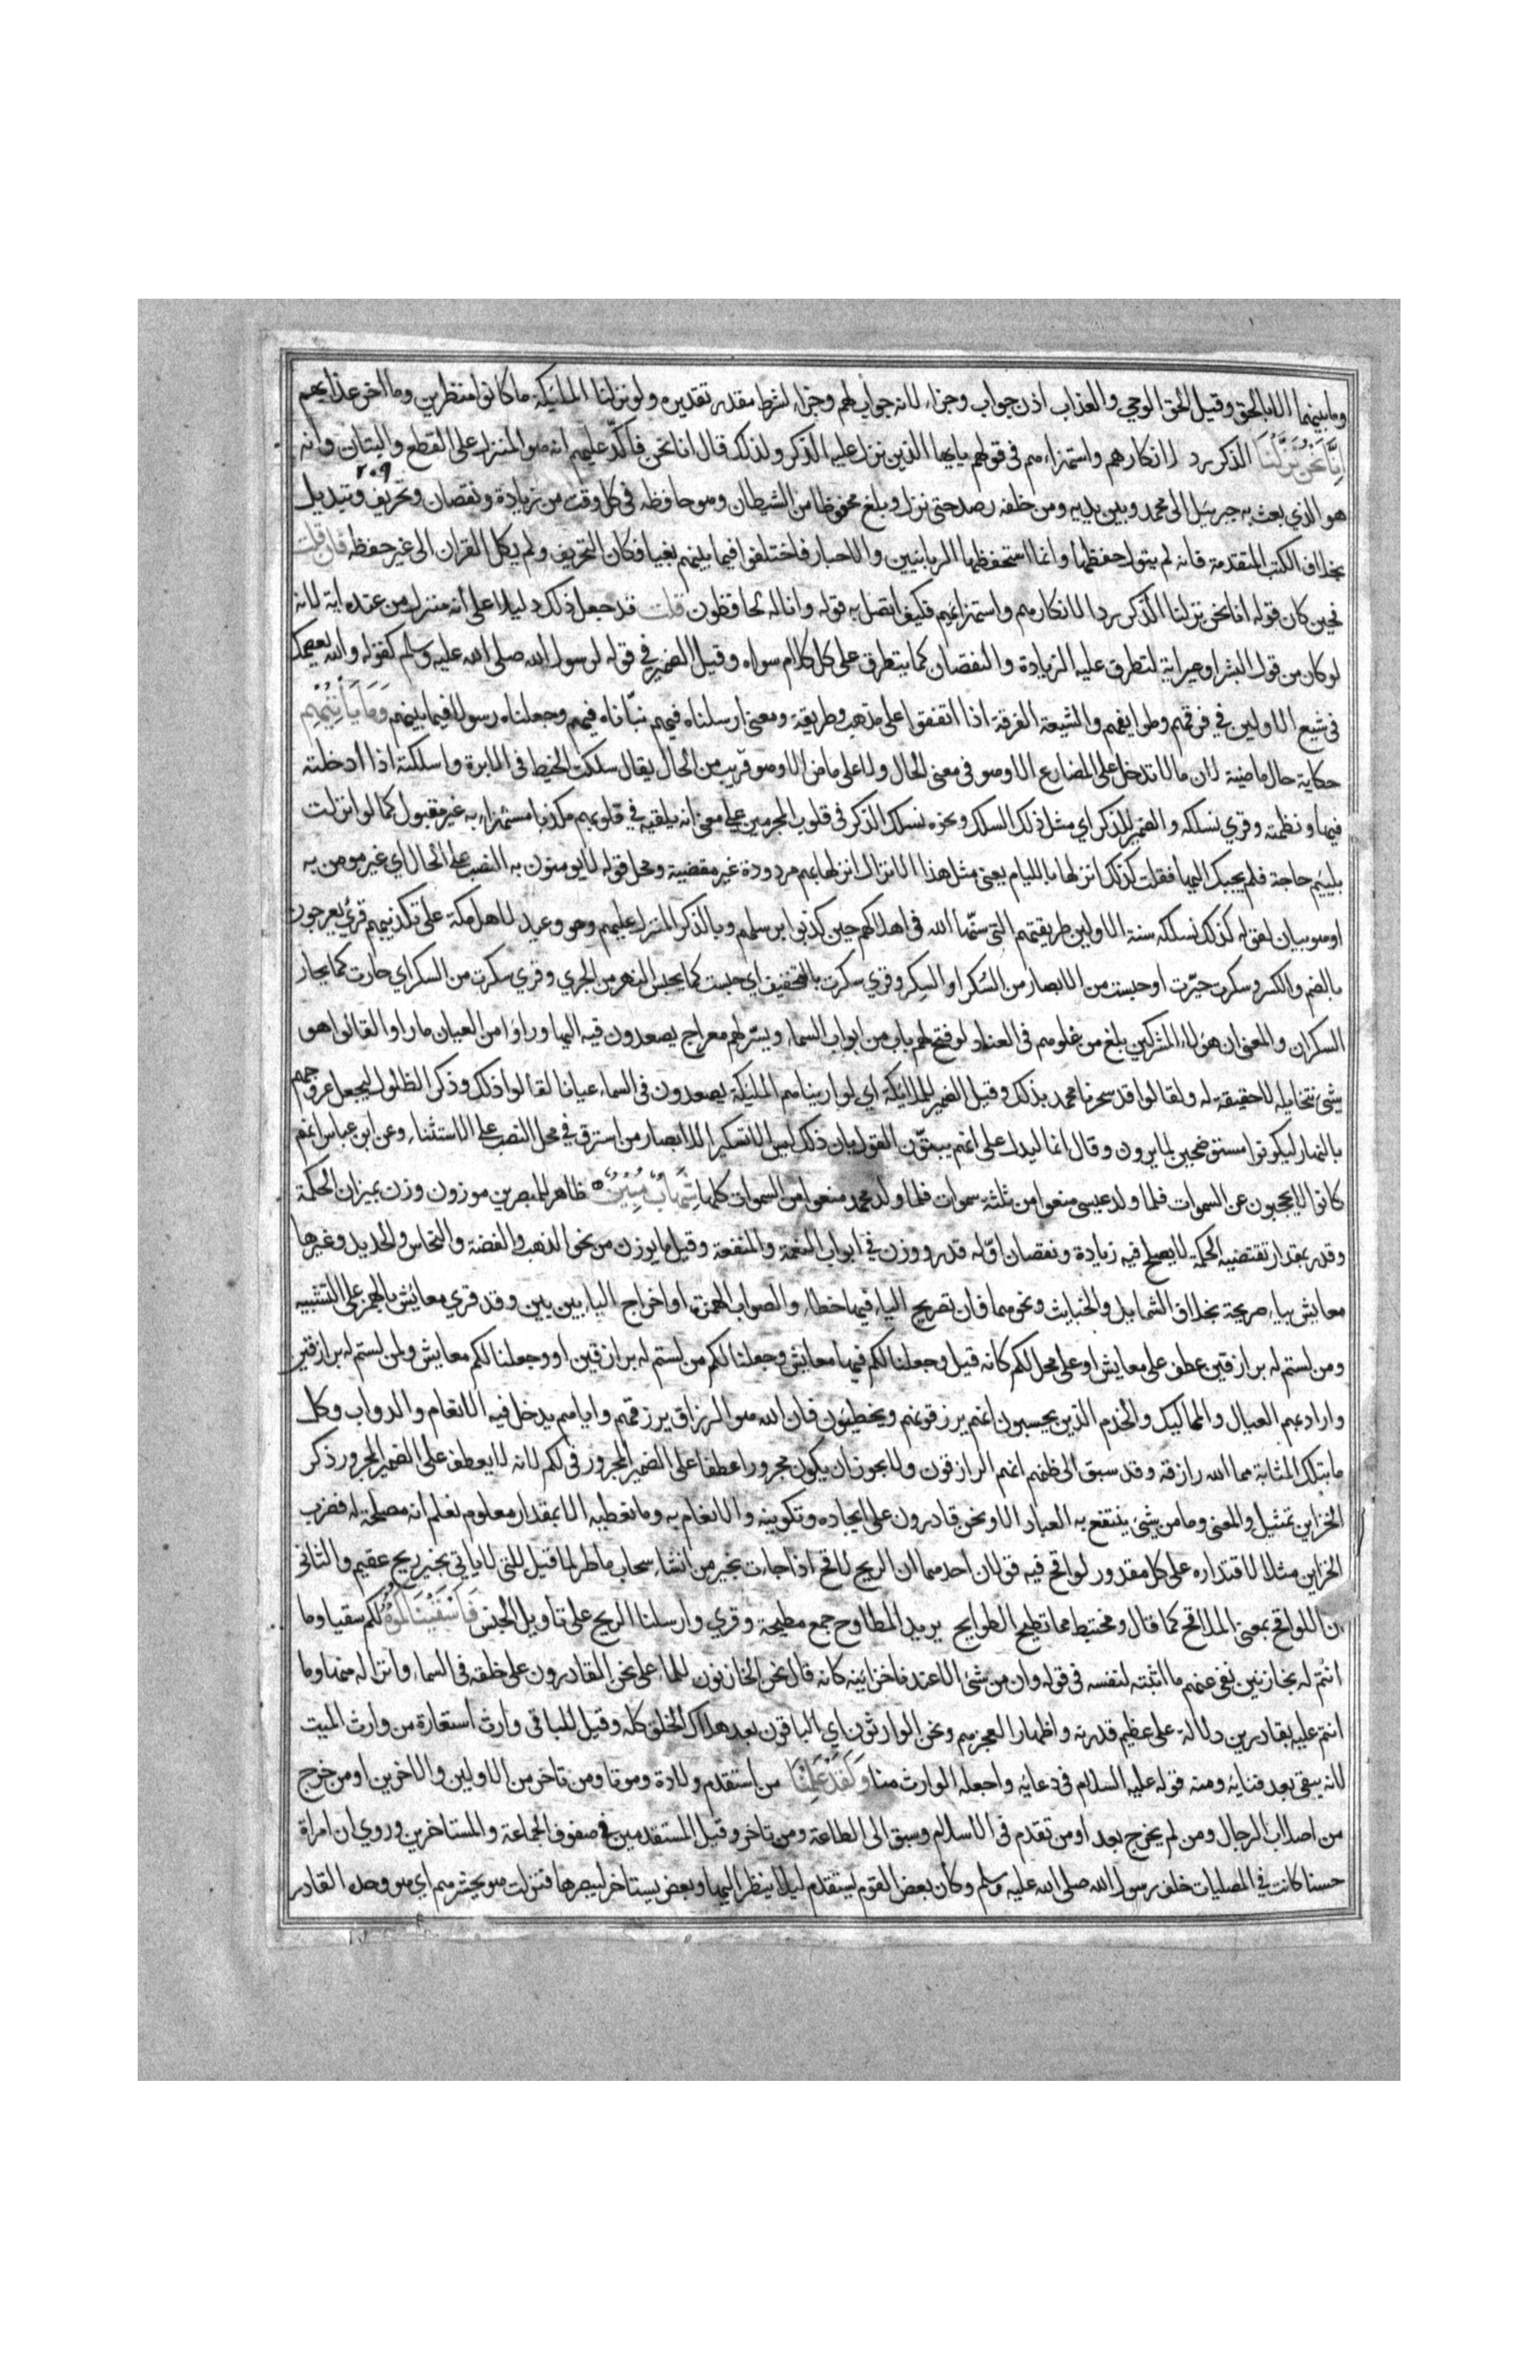 وما بينهما الا بالحق وقيل الحق الوحي والعذاب اذن جواب وجزاء لانه جواب لهم وجزاء لشرط مقدر تقديره ولو نزلنا الملئكة ما كانوا منظرين وما اخر عذابهم
إِنَّا نَحْنُ نَزَّلْنَا الذكر رد لانكارهم واستهزاءهم في قولهم يايها الذي نزل عليه الذكر ولذلك قال انا نحن فاكد عليهم انه هو المنزل على القطع والبتات وانه
٢٠٩
هو الذي بعث به جبرئيل الى محمد وبين يديه ومن خلفه رصد حتى نزل وبلغ محفوظا من الشيطان وهو حافظه في كل وقت من زيادة ونقصان وتحريف وتبديل
بخلاف الكتب المتقدمة فانه لم يتول حفظها وانما استحفظها الربانيين والاحبار فاختلفوا فيما بينهم بغيا فكان التحريف ولم يكل القران الى غير حفظه فان قلت
فحين كان قوله انا نحن نزلنا الذكر ردا لانكارهم واستهزائهم فكيف اتصل به قوله وانا له لحافظون قلت قد جعل ذلك دليلا على انه منزل من عنده اية لانه
لو كان من قول البشر او غير اية لتطرق عليه الزيادة والنقصان كما يتطرق على كل كلام سواه وقيل الضمير في قوله لرسول الله صلى الله عليه وسلم كقوله والله يعصمك
في شيع الاولين في فرقهم وطوايفهم والشيعة الفرقة اذا اتفقوا على مذهب وطريقة ومعنى ارسلناه فيهم نبأناه فيهم وجعلناه رسولا فيما بينهم وَمَا يَأْتِيهِمْ
حكاية حال ماضية لان ما لا تدخل على المضارع الا وهو في معنى الحال ولا على ماض الا وهو قريب من الحال يقال سلكت الخيط في الابرة واسلكته اذا أدخلته
فيها ونظمته وقري نسلكه والضمير للذكر اي مثل ذلك السلك ونحوه نسلك الذكر في قلوب المجرمين على معنى انه يلقيه في قلوبهم مكذبا مستهزاء به غير مقبول كما لو انزلت
بلييم حاجة فلم يجبك اليها فقلت كذلك انزلها باللئام يعني مثل هذا الانزال انزلها بهم مردودة غير مقضية ومحل قوله لا يومنون به النصب على الحال اي غير مومن به
او هو بيان لقوله كذلك نسلكه سنة الاولين طريقتهم التي سنها الله في اهلاكهم حين كذبوا برسلهم وبالذكر المنزل عليهم وهو وعيد لاهل مكة على تكذيبهم قرئ يعرجون
بالضم والكسر وسكرت حيرت او حبست من الابصار من السُكر او السِكر وقري سكرت بالتخفيف اي حبست كما يحبس النهر من الجري وقري سكرت من السكر اي حارت كما يحار
السكران والمعنى ان هؤلاء المشركين بلغ من غلوهم في العناد لو فتح لهم باب من ابواب السماء ويسر لهم معراج يصعدون فيه اليها وراوا من العيان ما راوا لقالوا هو
شئ نتخايله لا حقيقة له ولقالوا قد سحرنا محمد بذلك وقيل الضمير للملائكة اي لو اريناهم الملئكة يصعدون في السماء عيانا لقالوا ذلك وذكر الظلول ليجعل عروجهم
بالنهار ليكونوا مستوضحين لما يرون وقال انما ليدل على انهم يبتون القول بان ذلك ليس الا تسكيرا للابصار من استرق في محل النصب على الاستثناء وعن ابن عباس انهم
كانوا لا يحجبون عن السموات فلما ولد عيسى منعوا من ثلثة سموات فلما ولد محمد منعوا من السموات كلها شِهَابٌ مُبِينٌ ظاهر للمبصرين موزون وزن بميزان الحكمة
وقدر بمقدار تقتضيه الحكمة لا يصلح فيه زيادة ونقصان او له قدر ووزن في ابواب النعمة والمنفعة وقيل ما يوزن من نحو الذهب والفضة والنحاس والحديد وغيرها
معايش بياء صريحة بخلاف الشمايل والخبايث ونحوهما فان تصريح الياء فيها خطاء والصواب الهمزة او اخراج الياء بين بين وقد قري معائش بالهمز على التشبيه
ومن لستم له برازقين عطف على معايش او على محل لكم كانه قيل وجعلنا لكم فيها معايش وجعلنا لكم من لستم له برازقين او وجعلنا لكم معايش ولمن لستم له برازقين
واراد بهم العيال والمماليك والخدم الذين يحسبون انهم يرزقونهم ويخطئون فان الله هو الرزاق يرزقهم واياهم يدخل فيه الانعام والدواب وكل
ما بتلك المثابة مما الله رازقه وقد سبق الى ظنهم انهم الرازقون ولا يجوز ان يكون مجرورا عطفا على الضمير المجرور في لكم لانه لا يعطف على الضمير المجرور ذكر
الخزاين تمثيل والمعنى وما من شئ ينتفع به العباد الا ونحن قادرون على ايجاده وتكوينه والانعام به وما نعطيه الا بمقدار معلوم نعلم انه مصلحة له فضرب
الخزاين مثلا لاقتداره على كل مقدور لواقح فيه قولان احدهما ان الريح لاقح اذا جاءت بخير من انشاء سحاب ماطر لما قيل للتي لا ياتي بخير ريح عقيم والثاني
ان اللواقح بمعنى الملاقح كما قال ومختبط مما تطيح الطوايح يريد المطاوح جمع مطيحة وقري وارسلنا الريح على تاويل الجنس فَأَسْقَيْنَاكُمُوهُ لكم سقيا وما
انتم له بخازنين نفى عنهم ما اثبته لنفسه في قوله وان من شئ الا عندنا خزاينه كانه قال نحن الخازنون للماء على نحن القادرون على خلقه في السماء وانزاله منها وما
انتم عليه بقادرين دلالة على عظيم قدرته واظهارا لعجزهم ونحن الوارثون اي الباقون بعد هلاك الخلق كله وقيل للباقي وارث استعارة من وارث الميت
لانه يبقى بعد فنايه ومنه قوله عليه السلام في دعايه واجعله الوارث منا وَلَقَدْ عَلِمْنَا من استقدم ولادة وموتا ومن تاخر من الاولين والاخرين او من خرج
من اصلاب الرجال ومن لم يخرج بعد او من تقدم في الاسلام وسبق الى الطاعة ومن تاخر وقيل المستقدمين في صفوف الجماعة والمستاخرين وروي ان امراة
حسنا كانت في المصليات خلف رسول الله صلى الله عليه وسلم وكان بعض القوم يستقدم ليلا ينظر اليها وبعض يستاخر ليبصرها فنزلت هو يحشرهم اي هو وحده القادر